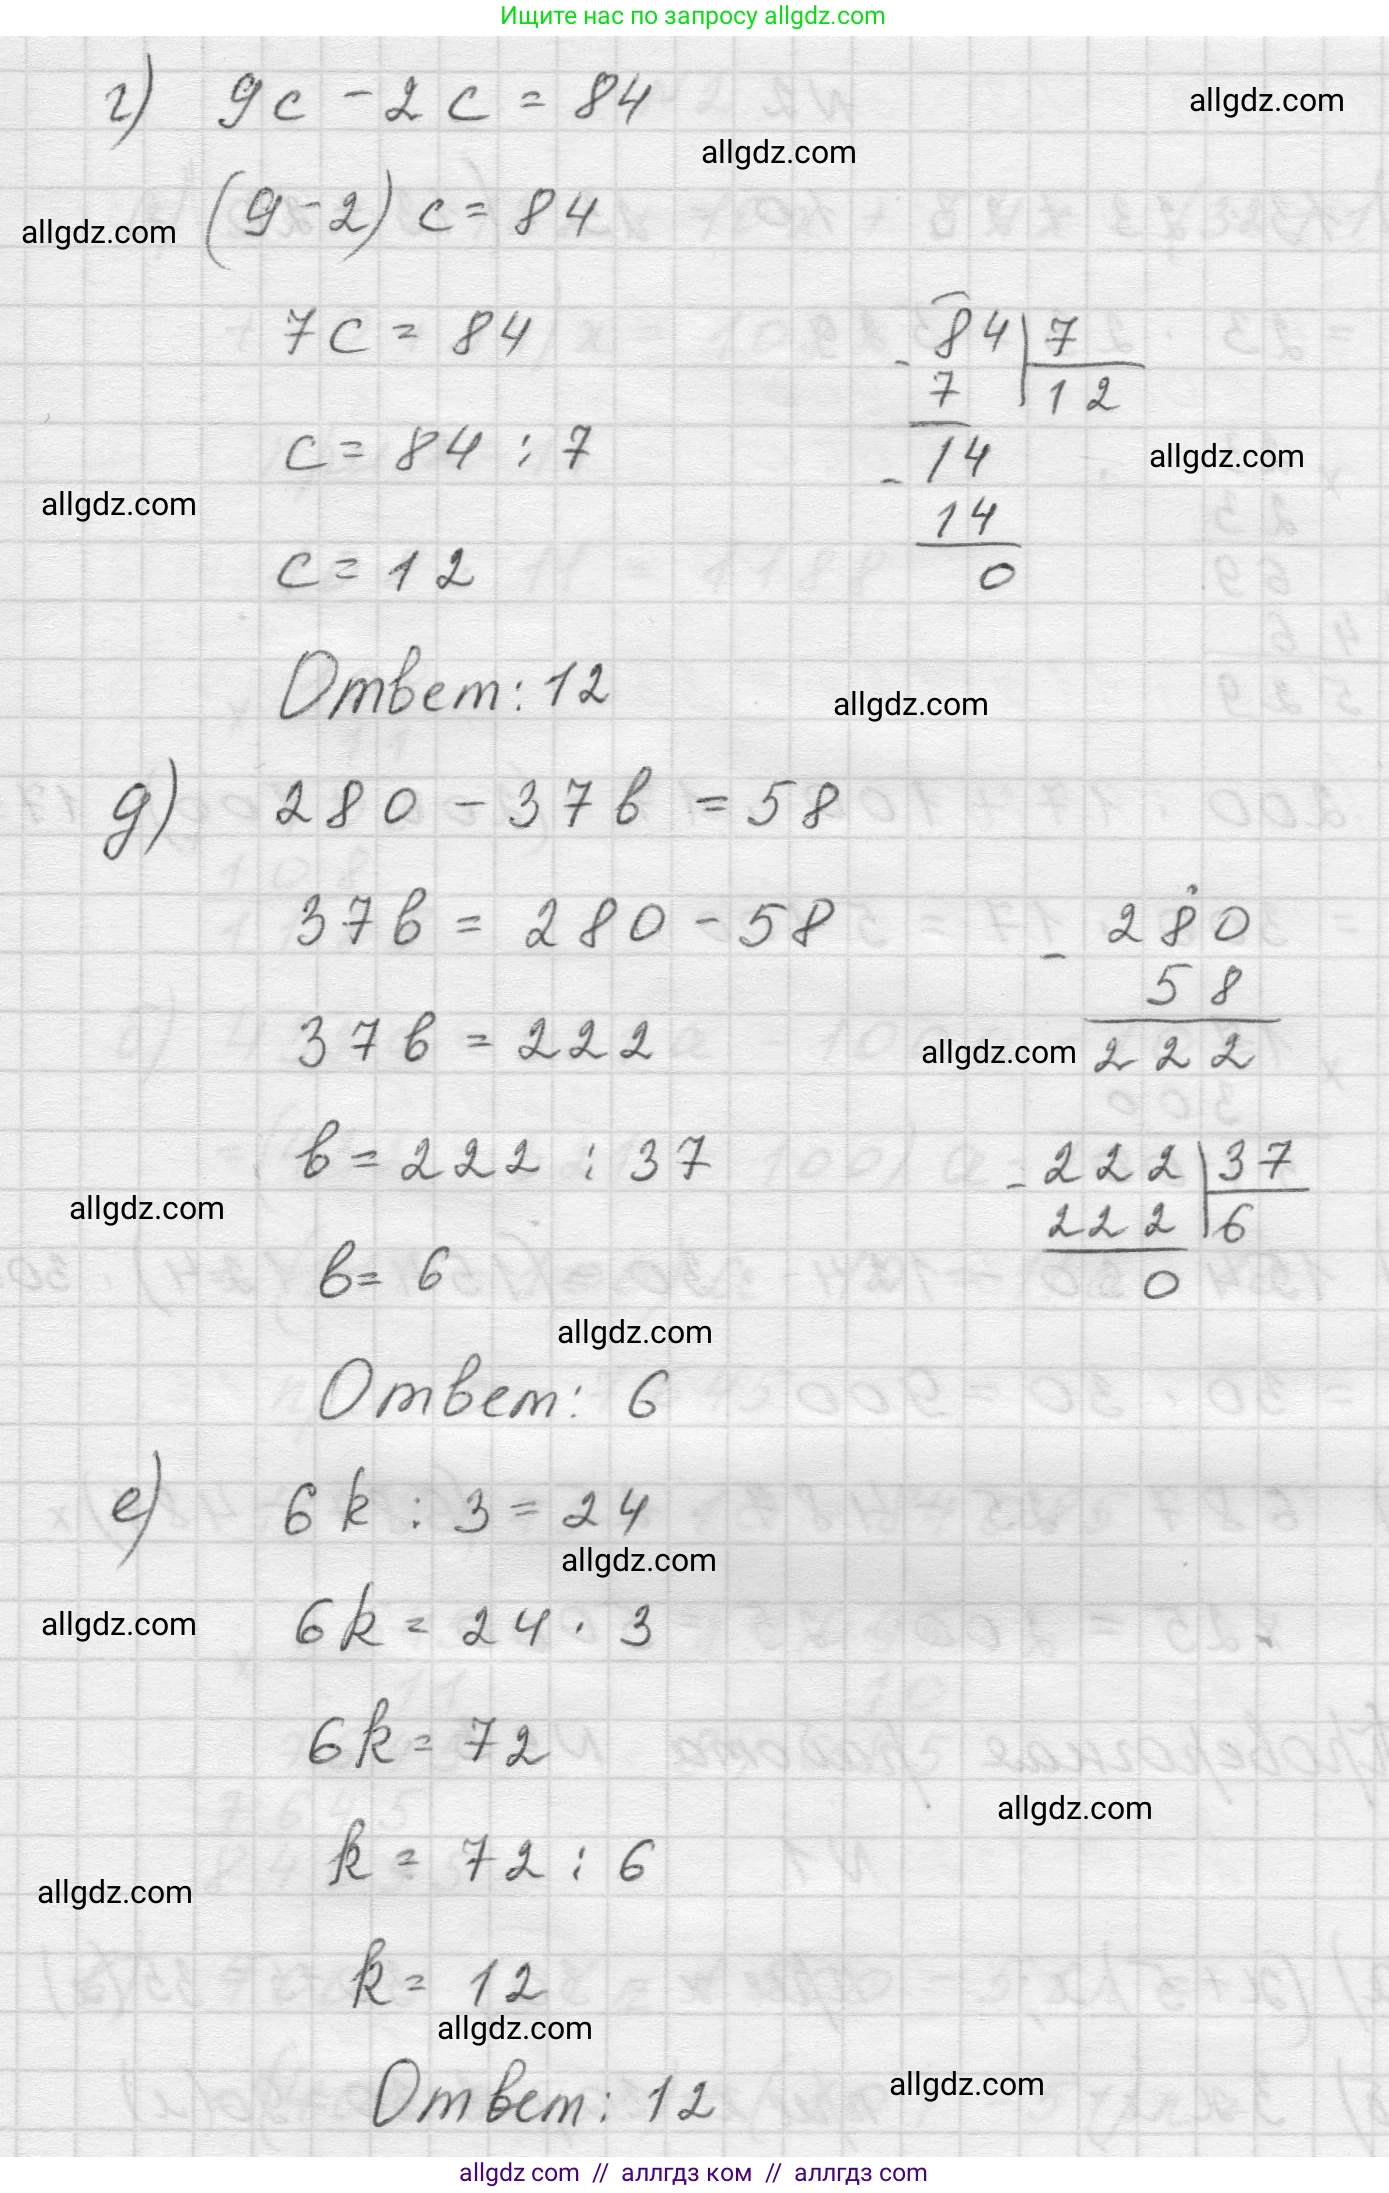 Ищите нас по запросу allgdz.com
г) 9c - 2c = 84
allgdz.com
allgdz.com
(9-2)c = 84
allgdz.com
7c = 84
84 | 7
- 7 | 12
c = 84 : 7
- 14
allgdz.com
allgdz.com
14
c = 12
0
Ответ: 12
allgdz.com
д) 280 - 37в = 58
37в = 280 - 58
- 280
58
37в = 222
allgdz.com
222
в = 222 : 37
- 222 | 37
allgdz.com
222 | 6
в = 6
0
allgdz.com
Ответ: 6
е) 6k : 3 = 24
allgdz.com
allgdz.com
6k = 24 · 3
6k = 72
allgdz.com
k = 72 : 6
allgdz.com
k = 12
allgdz.com
allgdz.com
Ответ: 12
allgdz com // аллгдз ком // аллгдз com